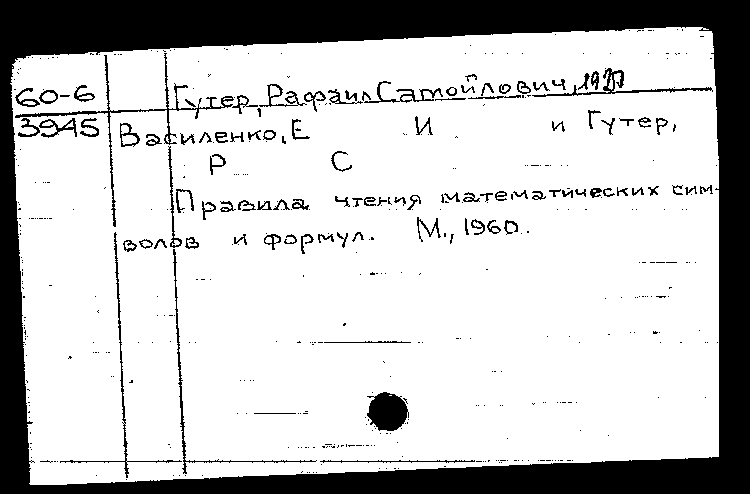 60-6
Гутер, Рафаил Самойлович,
3945
Василенко, Е И и Гутер,
Р С
Правила чтения математических сим-
волов и формул. М., 1960.